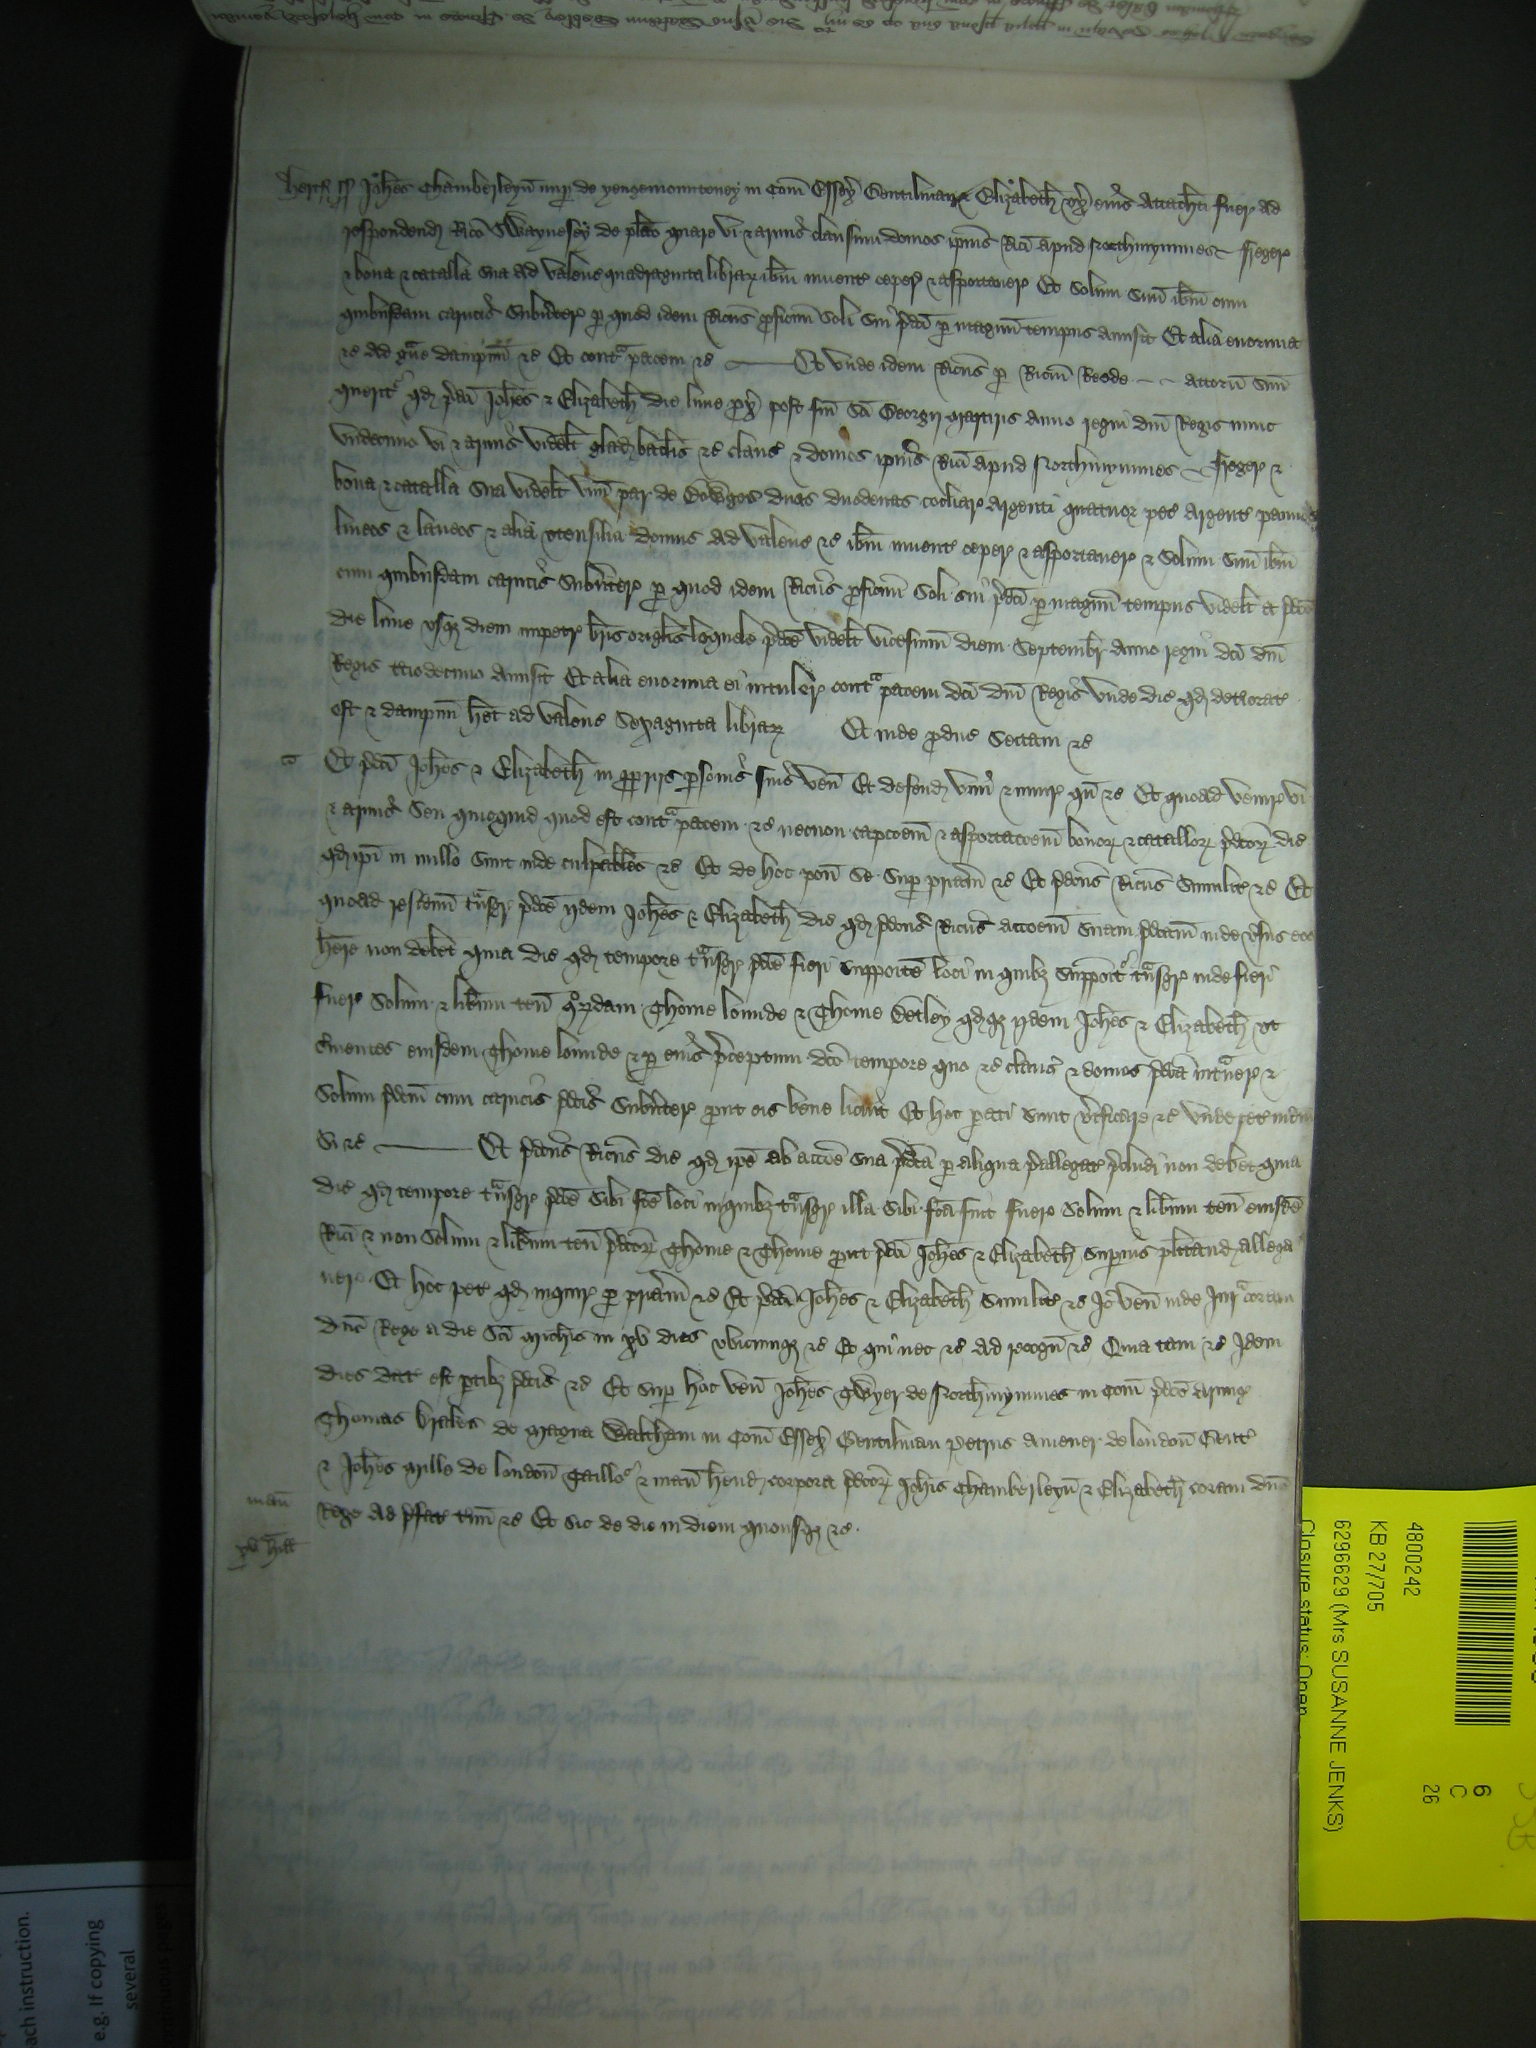 Hertf ss Joh̃es Chamberleyñ nup de yengemounteney in Com̃ Essex̃ Gentilman & Elizabeth ux̃ eius attach̃ti fuer̃ ad
respondend Rico Swaynesey de pl̃ito quare vi & armis clausum domos ipius Rici apud Northmymmes freger̃
& bona & catalla sua ad valenc̃ quadraginta librar̃ ibm̃ invent̃ ceper̃ & asportaver̃ Et solum suũ ibm̃ cum
quibusdam carucis subverter̃ p quod idem Ricus proficuũ soli sui p̃dci p magnũ tempus amisit Et alia enormia
&c̃ ad g̃ve dampnũ &c̃ Et cont̃ pacem &c̃ Et unde idem Ricus p Ricm̃ Reede attorñ suũ
querit̃ qd p̃dci Joh̃es & Elizabeth die lune prox̃ post fm̃ sc̃i Georgij martiris anno regni dñi Regis nunc
undecimo vi & armis videlt̃ glad baclis &c̃ claus̃ & domos ipius Rici apud Northmymmes freger̃ &
bona & catalla sua videlt̃ unũ par de duas duodenas cocliar̃ argenti quatuor pec̃ argent̃ pannos
lineos & laneos & alia utensilia domus ad valenc̃ &c̃ ibm̃ invent̃ ceper̃ & asportaver̃ & solum suũ ibm̃
cum quibusdam carucis subverter̃ p quod idem Ricus proficuũ soli sui p̃dci p magnũ tempus videlt̃ a p̃dco
die lune usq diem impetr̃ bris orig̃lis loquele p̃dce videlt̃ vicesimũ diem Septembr̃ anno regni dci dñi
Regis tciodecimo amisit Et alia enormia ei intuler̃ cont̃ pacem dci dñi Regis unde dic̃ qd deteriorat̃
est & dampnũ het̃ ad valenc̃ sexaginta librar̃ Et inde produc̃ sectam &c̃
Et p̃dci Joh̃es & Elizabeth in pprijs psonis suis veñ Et defend vim & iniur̃ qñ &c̃ Et quoad venir̃ vi
& armis seu quicquid quod est cont̃ pacem &c̃ necnon capcoem̃ & asportacoem̃ bonor̃ & catallor̃ p̃dcor̃ dic̃
qd ipi in nullo sunt inde culpabiles &c̃ Et de hoc poñ se sup pr̃iam &c̃ Et p̃dcus Ricus similit̃ &c̃ Et
quoad residuũ t̃nsgr̃ p̃dce ijdem Joh̃es & Elizabeth dic̃ qd p̃dcus Ricus accoem̃ suam p̃dcam inde ṽsus eos
here non debet quia dic̃ qd tempore t̃nsgr̃ p̃dce fieri supposite loci in quibz supponit̃ t̃nsgr̃ inde fieri
fuer̃ solum & lib̃um teñ quordam Thome lounde & Thome qdq ijdem Joh̃es & Elizabeth ut
s̃vientes eiusdem Thome lounde & p eius p̃ceptum dco tempore quo &c̃ claus̃ & domos p̃dca int̃ver̃ &
solum p̃dcm cum carucis p̃dcis subverter̃ prout eis bene licuit Et hoc parati sunt ṽificare &c̃ unde pet̃ iudm̃
si &c̃ Et p̃dcus Ricus dic̃ qd ipe ab accoe sua p̃dca p aliqua p̃allegat̃ p̃cludi non debet quia
dic̃ qd tempore t̃nsgr̃ p̃dce sibi fc̃e loci in quibz t̃nsgr̃ illa sibi fc̃a fuit fuer̃ solum & lib̃um teñ eiusdẽ
Rici & non solum & lib̃um teñ p̃dcor̃ Thome & Thome prout p̃dci Joh̃es & Elizabeth supius pl̃itand allega
ver̃ Et hoc pet̃ qd inquir̃ p pr̃iam &c̃ Et p̃dci Joh̃es & Elizabeth similit̃ &c̃ Jo veñ inde Jur̃ coram
dño Rege a die sc̃i Mich̃is in xv dies ubicumq &c̃ Et qui nec &c̃ ad recogñ &c̃ Quia tam &c̃ Idem
dies dat̃ est ptibz p̃dcis &c̃ Et sup hoc veñ Joh̃es de Northmymmes in Com̃ p̃dco armig̃
Thomas de Magna Waltham in Com̃ Essex̃ Gentilman Petrus de londoñ Gent̃
& Joh̃es Mills de londoñ Taillo & mañ hend corpora p̃dcor̃ Joh̃is Chamberleyñ & Elizabeth coram dño
mañ
Rege ad p̃fat̃ tm̃ &c̃ Et sic de die in diem quousq &c̃
4800242
KB 27/705
6296629 (Mrs SUSANNE JENKS)
Closure status: Open
6
C
26
ach instruction.
e.g. If copying
several